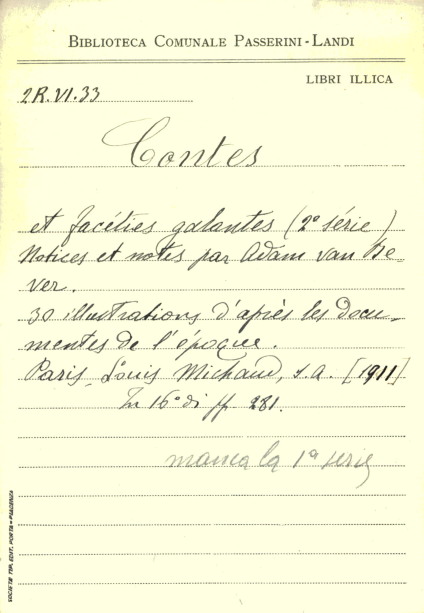 BIBLIOTECA COMUNALE PASSERINI-LANDI
LIBRI ILLICA
2R.VI.33
Contes
et facéties galantes (2ª série)
Notices et notes par Adam van Be-
ver.
30 illustrations d'après les docu-
mentes de l'époque.
Paris, Louis Michaud, s.a. [1911]
In 16° di ff 281.
manca la 1ª serie
SOCIETÀ TIP. EDIT. PORTA - PIACENZA